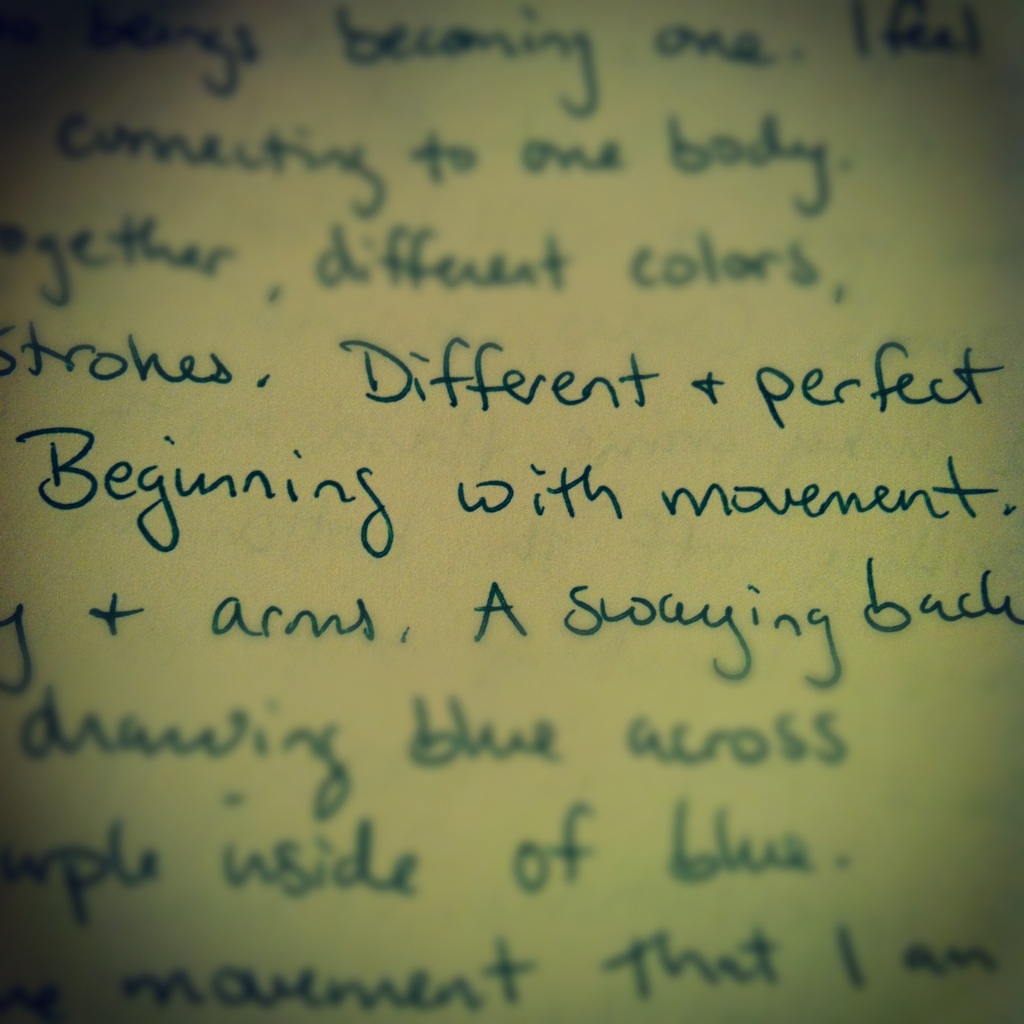 beings becoming one. I feel
connecting to one body.
ogether, different colors,
Strokes. Different + perfect
Beginning with movement.
y + arms. A swaying back
drawing blue across
urple inside of blue.
movement that I am